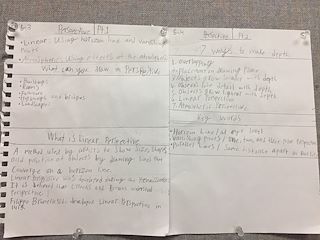 Perspective Pt.1
• Linear: Using horizon line and vanishing points
• Atmospheric: Using levels of the atmosphere
What can you draw in Perspective
• Buildings
• Rooms
• Landscapes
What is Linear Perspective
A method used by artists to show sizes, shapes
and position of objects by drawing lines that
Converge on a horizon line.
Linear Perspective was invented during the Renaissance
It is believed that Greeks and Romans worked
Perspective!
Filippo Brunelleschi developed Linear Perspective in
Perspective Pt.2
7 ways to make depth
1. overlapping
2. Placement on drawing Plane
3. Objects grow smaller
4. Objects lose detail with depth
5. Objects grow lighter with depth
6. Linear Perspective
7. Atmospheric Perspective
Key words
• Horizon line / at eye level
• Vanishing points / one, two and three point Perspective
• Parallel lines / Same distance apart